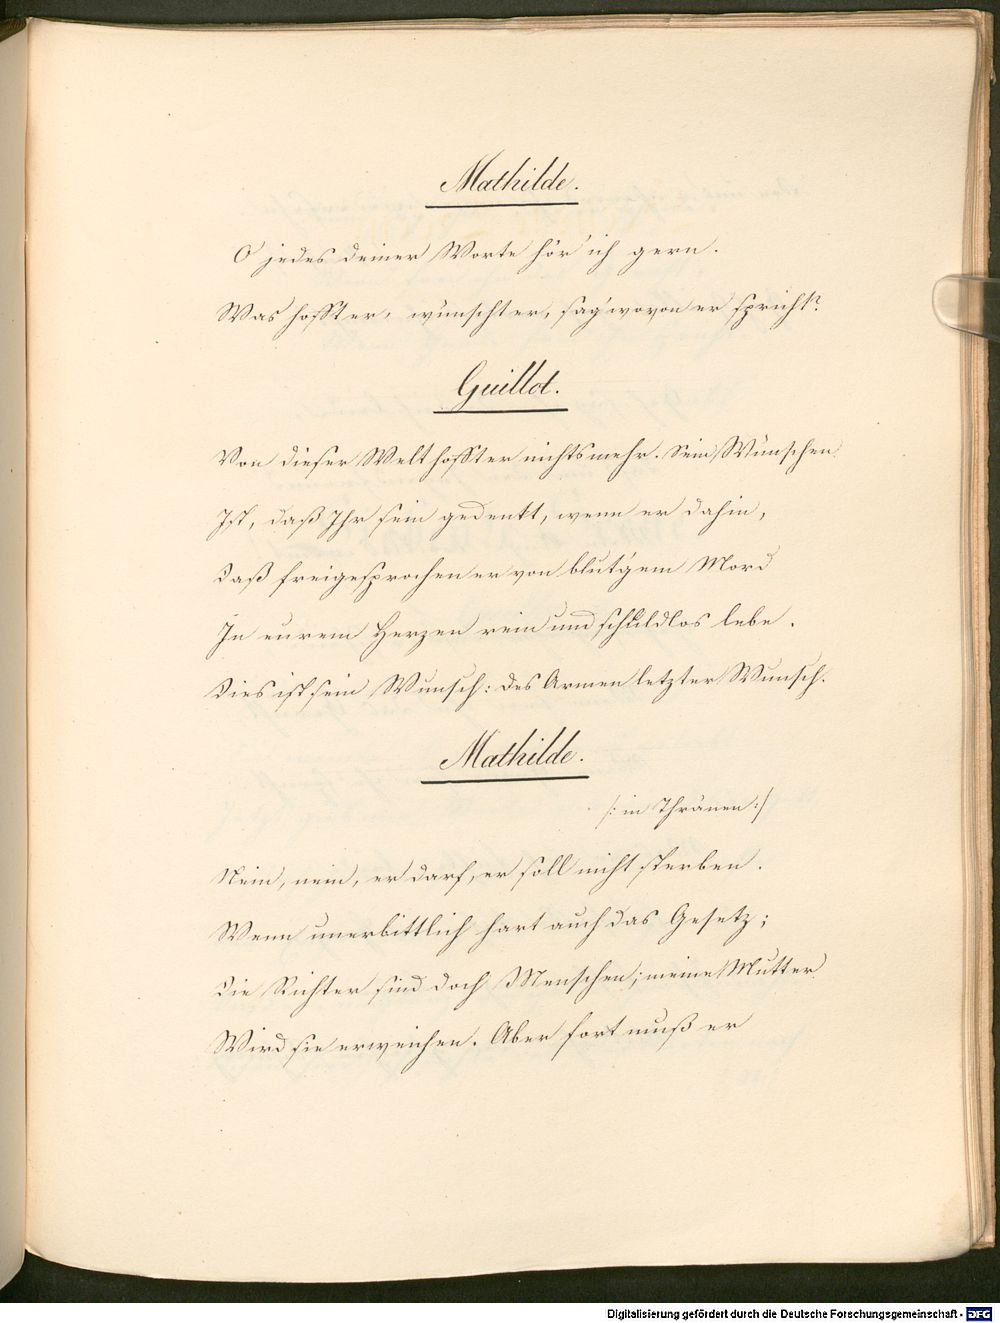 Mathilde.
O jedes deiner Worte hör' ich gern.
Was hofft er, wünscht er, sag' wovon er spricht?
Guillot.
Von dieser Welt hofft er nichts mehr. Sein Wünschen
Ist, daß Ihr sein gedenkt, wenn er dahin,
Daß freigesprochen er von blut'gem Mord
In eurem Herzen rein und schuldlos lebe.
Dies ist sein Wunsch: des Armen letzter Wunsch.
Mathilde.
/: in Thränen :/
Nein, nein, er darf, er soll nicht sterben.
Wenn unerbittlich hart auch das Gesetz;
Die Richter sind doch Menschen; meine Mutter
Wird sie erweichen. Aber fort muß er
Digitalisierung gefördert durch die Deutsche Forschungsgemeinschaft - DFG